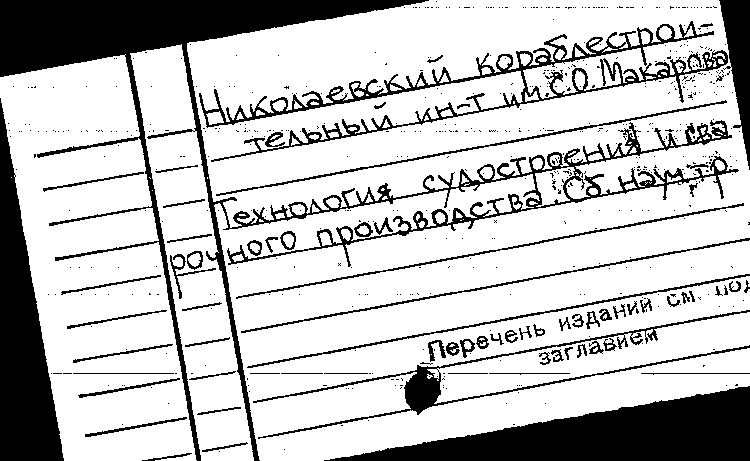 Николаевский кораблестрои=
тельный ин-т им.С.О.Макарова
Технология судостроения и сва-
рочного производства. Сб. науч.тр
Перечень изданий см. под
заглавием